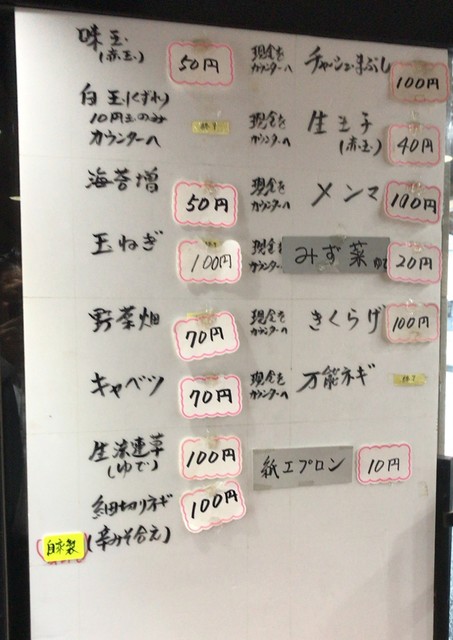 味玉
(赤玉)
50円
白玉(くずれ)
10円玉のみ
カウンターへ
終了
海苔増
50円
玉ねぎ
100円
野菜畑
70円
キャベツ
70円
生ホウレン草
(ゆで)
100円
細切りネギ
(辛みそ合え)
100円
自家製
現金を
カウンターへ
チャーシューまぶし
100円
現金を
カウンターへ
生玉子
(赤玉)
40円
現金を
カウンターへ
メンマ
100円
現金を
カウンター
みず菜
20円
現金を
カウンターへ
きくらげ
100円
現金を
カウンターへ
万能ネギ
終了
紙エプロン
10円